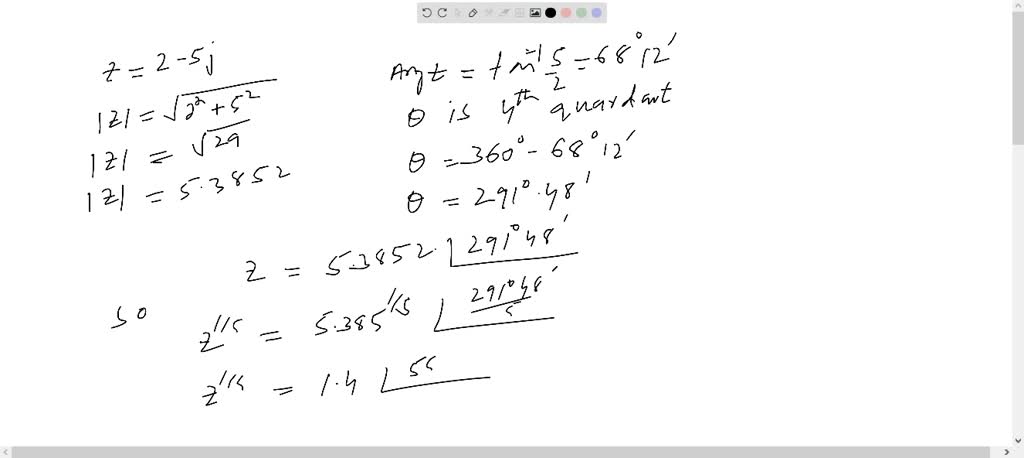 z = 2 - 5j
|z| = √(2² + 5²)
|z| = √29
|z| = 5.3852
Arg z = tan⁻¹ 5/2 = 68° 12'
θ is 4th quardant
θ = 360° - 68° 12'
θ = 291°.48'
z = 5.3852 ∠291° 48'
so
z^1/5 = 5.385^1/5 ∠291° 48'/5
z^1/5 = 1.4 ∠58